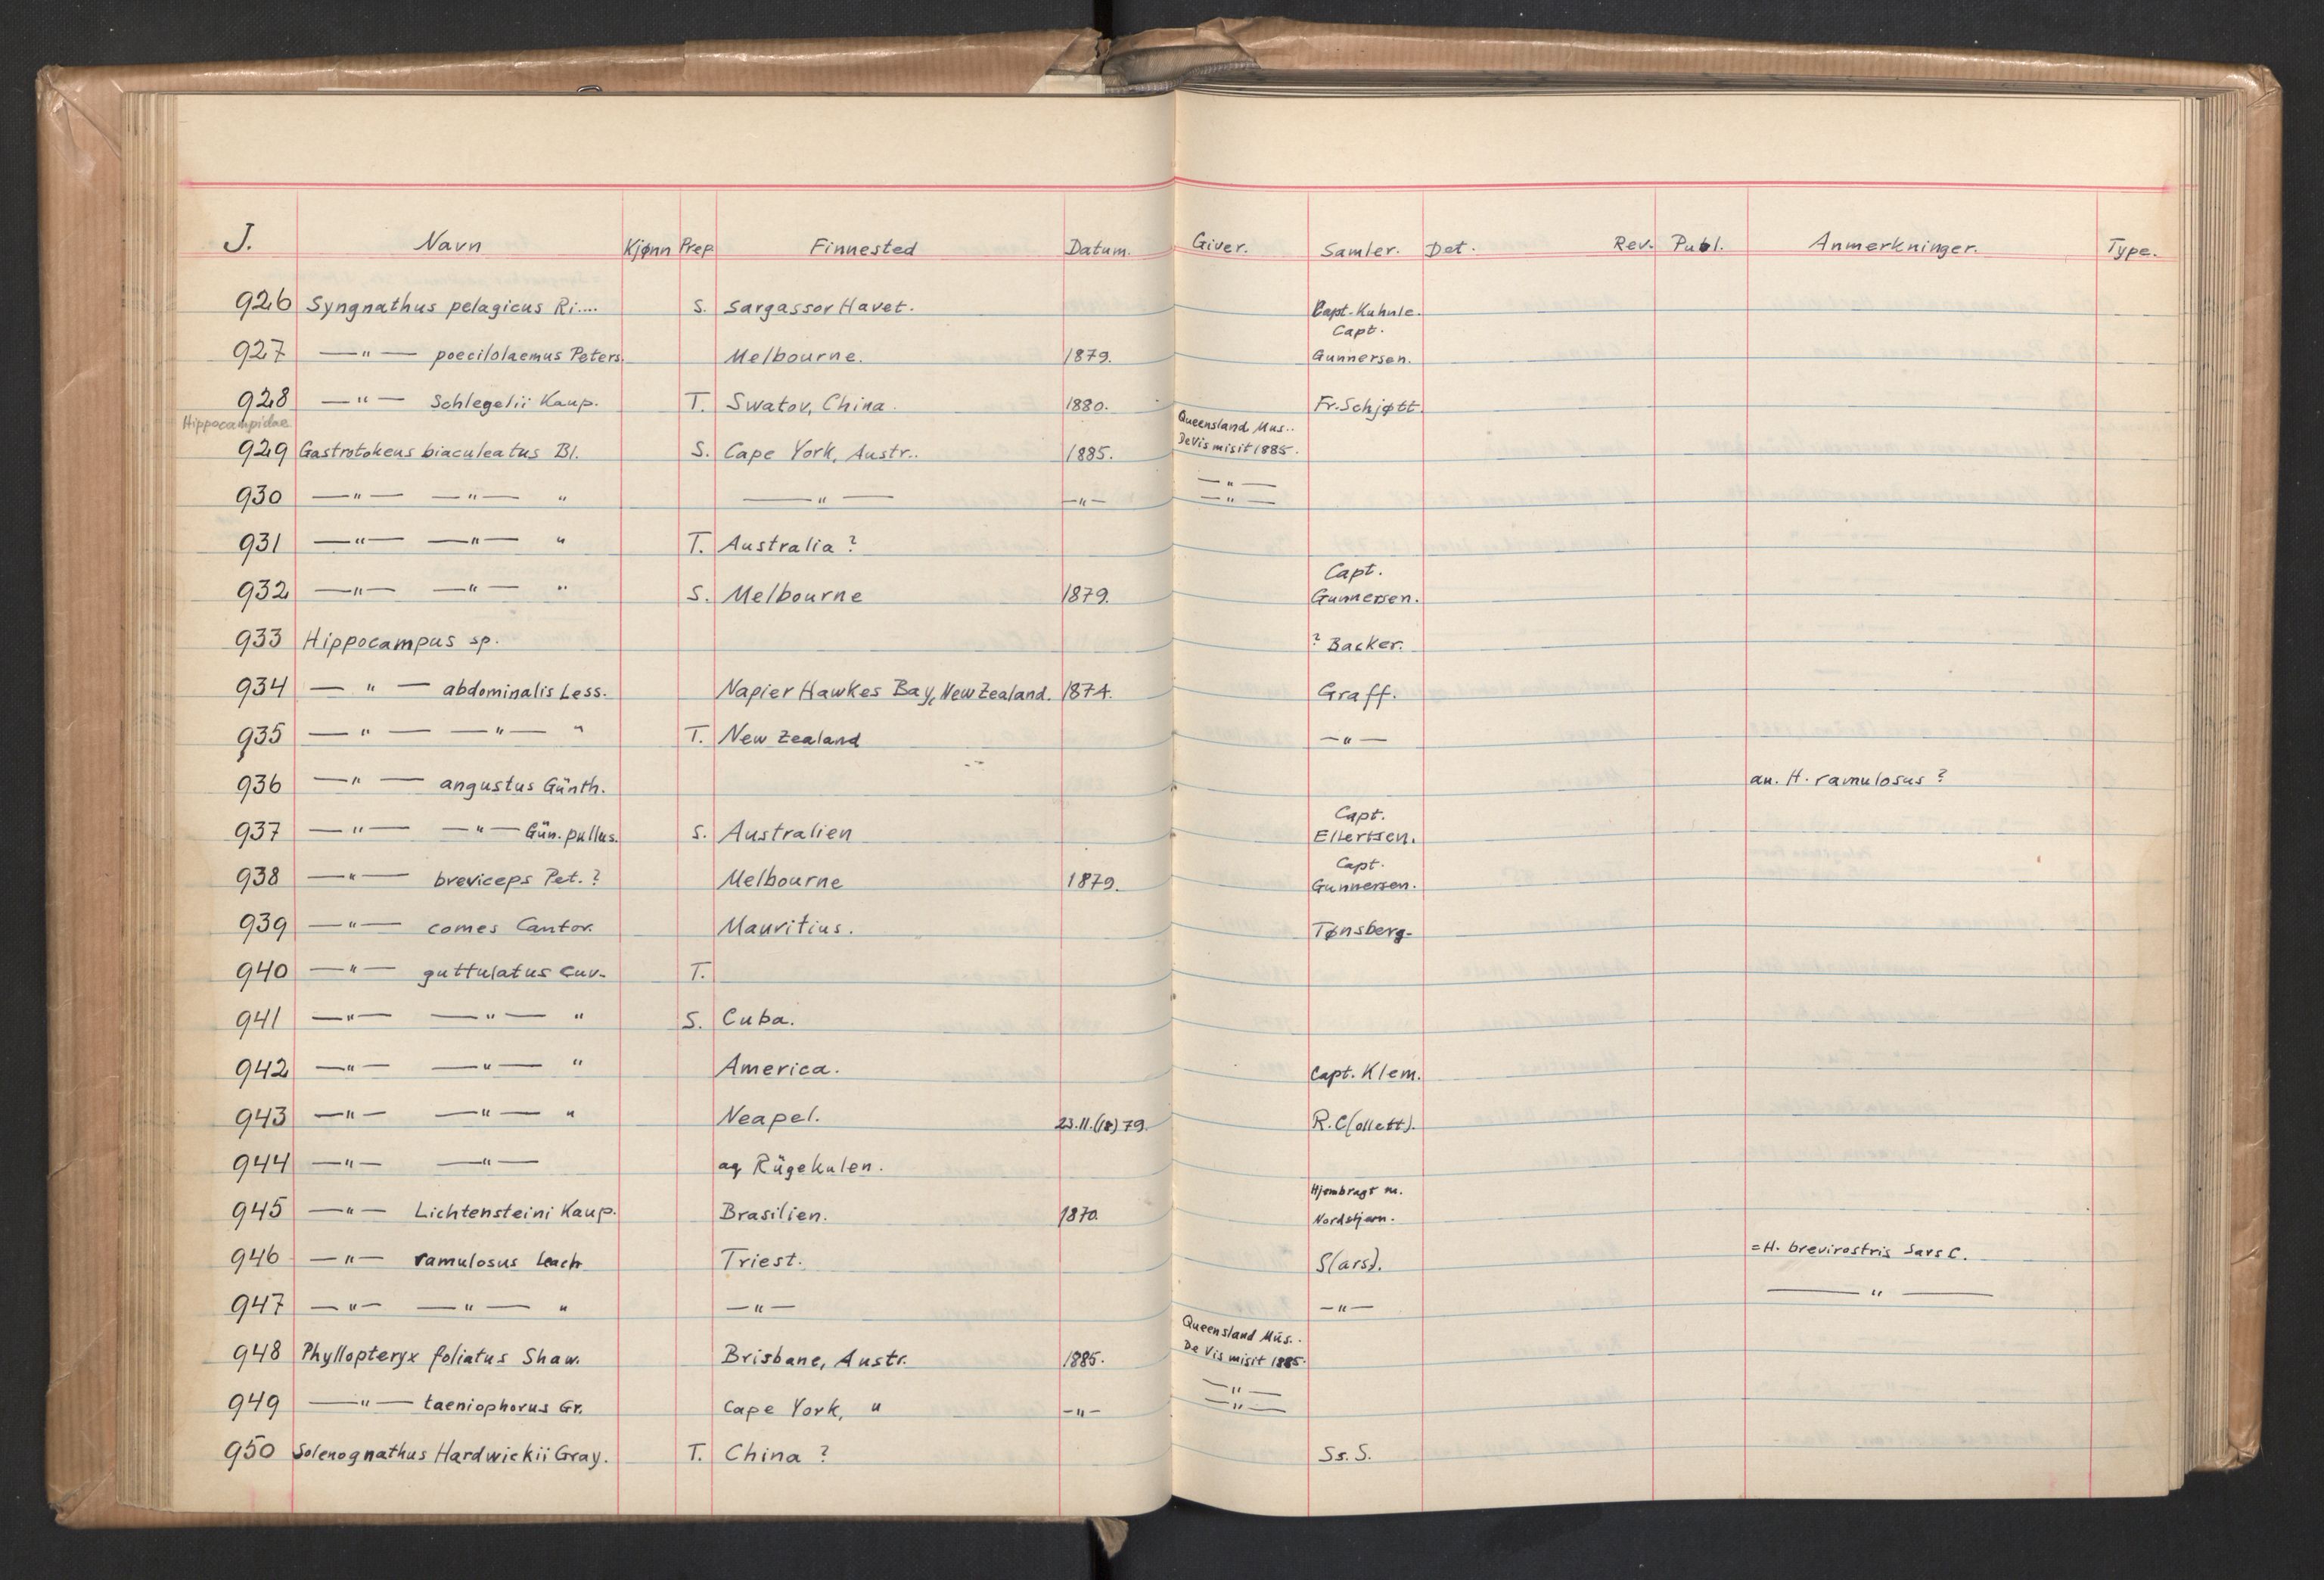 J. Navn Kjønn Prep Finnested Datum. Giver. Samler. Det. Rev. Publ. Anmerkninger. Type.
926 Syngnathus pelagicus Ri.... S. Sargassor Havet. Capt. Kuhnle.
927 —"— poecilolaemus Peters. Melbourne. 1879. Capt. Gunnersen.
928 —"— Schlegelii Kaup. T. Swatov, China. 1880. Fr. Schjøtt.
Hippocampidae
929 Gastrotokeus biaculeatus Bl. S. Cape York, Austr.. 1885. Queensland Mus.. De Vis misit 1885.
930 —"— —"— " —"— —"— —"— —"—
931 —"— —"— " T. Australia ?
932 —"— —"— " S. Melbourne 1879. Capt. Gunnersen.
933 Hippocampus sp. ? Backer.
934 —"— abdominalis Less. Napier Hawkes Bay, New Zealand. 1874. Graff.
935 —"— —"— " T. New Zealand —"—
936 —"— angustus Günth. an. H. ramulosus ?
937 —"— —"— Gün. pullus. S. Australien Capt. Ellertsen.
938 —"— breviceps Pet. ? Melbourne 1879. Capt. Gunnersen.
939 —"— comes Cantor. Mauritius. Tønsberg.
940 —"— guttulatus Cuv. T.
941 —"— —"— " S. Cuba.
942 —"— —"— " America. Capt. Klem.
943 —"— —"— " Neapel. 23.11.(18)79. R. C(ollett).
944 —"— —"— aq Rügekulen.
945 —"— Lichtensteini Kaup. Brasilien. 1870. Hjembragt m. Nordstjern.
946 —"— ramulosus Leach Triest. S(ars). =H. brevirostris Sars C.
947 —"— —"— " —"— —"— —"—
948 Phyllopteryx foliatus Shaw. Brisbane, Austr. 1885. Queensland Mus.. De Vis misit 1885.
949 —"— taeniophorus Gr. Cape York, " —"— —"— —"—
950 Solenognathus Hardwickii Gray. T. China ? Ss. S.